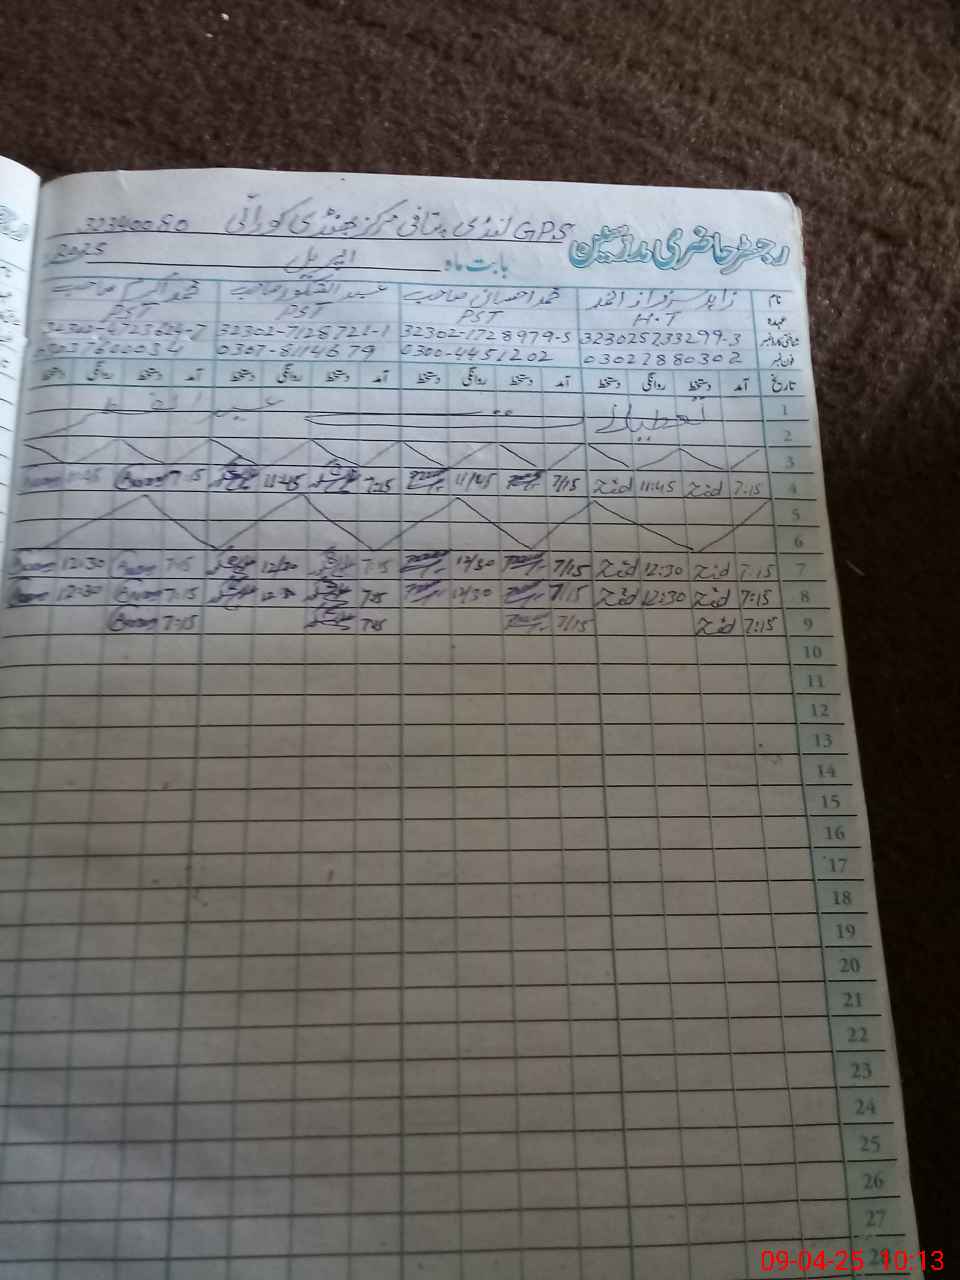 رجسٹر حاضری مدرسین GPS لنڈی پتافی مرکز جھنڈی کورائی 32340080
بابت ماہ اپریل 2025
نام زاہد سرفراز احمد محمد احسان صاحب عبدالشکور صاحب محمد اکرم صاحب
عہدہ H.T PST PST PST
شناختی کارڈ نمبر 323025233299-3 32302-1728979-5 32302-7128721-1
فون نمبر 03022880302 0300-4451202 0307-8114679
تاریخ آمد دستخط روانگی دستخط آمد دستخط روانگی دستخط آمد دستخط روانگی دستخط آمد دستخط روانگی دستخط
1 تعطیلات عید الفطر
2
3
4 7:15 Zid 11:45 Zid 7/15 11/45 7:15 11:45 7:15 11:45
5
6
7 7:15 Zid 12:30 Zid 7/15 12/30 7:15 12/30 7:15 12:30
8 7:15 Zid 12:30 Zid 7/15 12/30 7:15 12:30 7:15 12:30
9 7:15 Zid 7/15 7:15 7:15
10
11
12
13
14
15
16
17
18
19
20
21
22
23
24
25
26
27
28
09-04-25 10:13